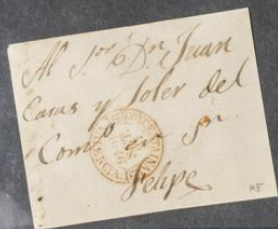 Al Sor Dn Juan
Casas y Soler del
Comº en Sn
Felipe